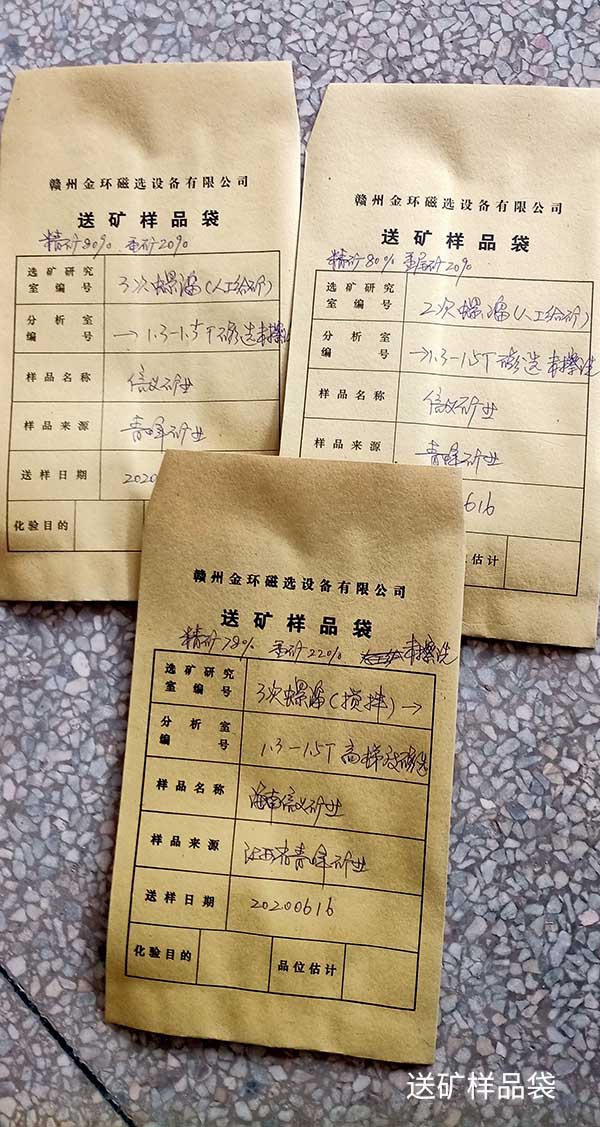 赣州金环磁选设备有限公司
送矿样品袋
精矿80% 重矿20%
选矿研究室编号 3次螺溜(人工给矿)
分析室编号 →1.3-1.5T磁选 未擦洗
样品名称 信义矿业
样品来源 青峰矿业
送样日期 2020
化验目的
赣州金环磁选设备有限公司
送矿样品袋
精矿80% 尾矿20%
选矿研究室编号 2次螺溜(人工给矿)
→1.3-1.5T 磁选 未擦洗
分析室编号
样品名称 信义矿业
样品来源 青峰矿业
616
估计
赣州金环磁选设备有限公司
送矿样品袋
精矿78% 重矿22% 未擦洗
选矿研究室编号 3次螺溜(搅拌)→
分析室编号 1.3-1.5T 高梯度磁选
样品名称 海南信义矿业
样品来源 江西省青峰矿业
送样日期 20200616
化验目的 品位估计
送矿样品袋